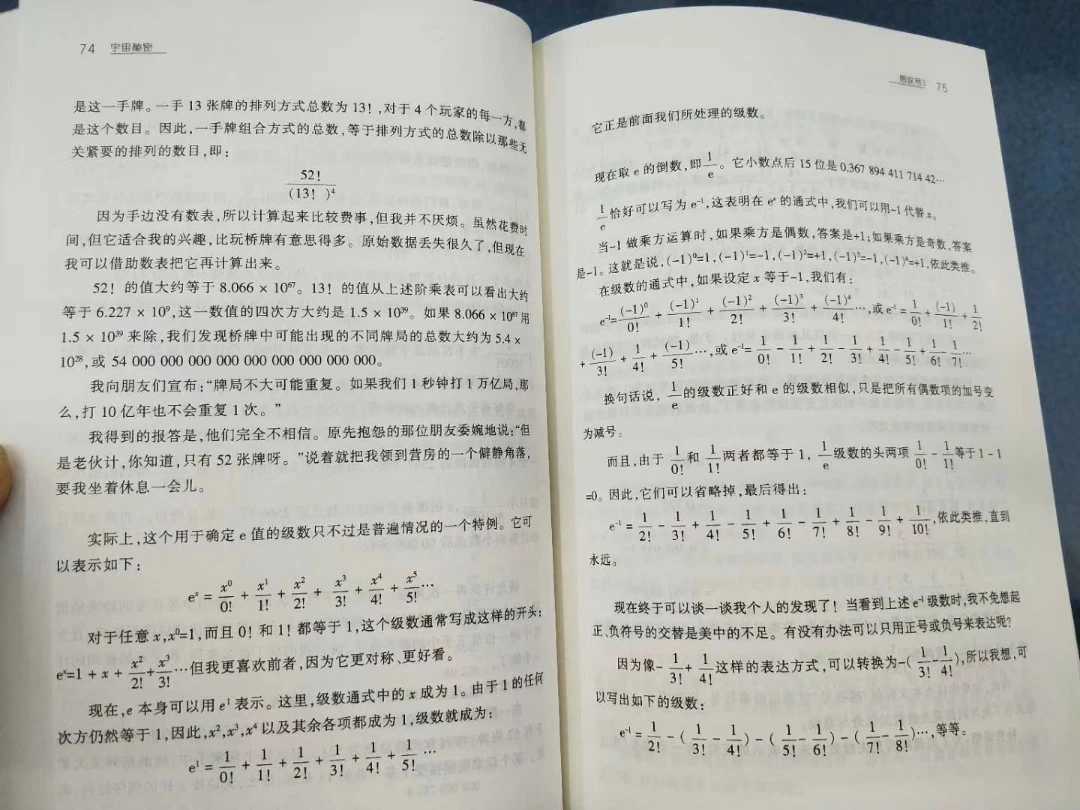 74 宇宙秘密
是这一手牌。一手 13 张牌的排列方式总数为 13！,对于 4 个玩家的每一方,都
是这个数目。因此,一手牌组合方式的总数,等于排列方式的总数除以那些无
关紧要的排列的数目,即：
52！/(13！)⁴
因为手边没有数表,所以计算起来比较费事,但我并不厌烦。虽然花费时
间,但它适合我的兴趣,比玩桥牌有意思得多。原始数据丢失很久了,但现在
我可以借助数表把它再计算出来。
52！的值大约等于 8.066 × 10⁶⁷。13！的值从上述阶乘表可以看出大约
等于 6.227 × 10⁹,这一数值的四次方大约是 1.5 × 10³⁹。如果 8.066 × 10⁶⁷ 用
1.5 × 10³⁹ 来除,我们发现桥牌中可能出现的不同牌局的总数大约为 5.4 ×
10²⁸,或 54 000 000 000 000 000 000 000 000 000。
我向朋友们宣布:“牌局不大可能重复。如果我们 1 秒钟打 1 万亿局,那
么,打 10 亿年也不会重复 1 次。”
我得到的报答是,他们完全不相信。原先抱怨的那位朋友委婉地说:“但
是老伙计,你知道,只有 52 张牌呀。”说着就把我领到营房的一个僻静角落,
要我坐着休息一会儿。
实际上,这个用于确定 e 值的级数只不过是普遍情况的一个特例。它可
以表示如下：
eˣ = x⁰/0! + x¹/1! + x²/2! + x³/3! + x⁴/4! + x⁵/5! …
对于任意 x,x⁰=1,而且 0！和 1！都等于 1,这个级数通常写成这样的开头:
eˣ=1 + x + x²/2! + x³/3! …但我更喜欢前者,因为它更对称、更好看。
现在,e 本身可以用 e¹ 表示。这里,级数通式中的 x 成为 1。由于 1 的任何
次方仍然等于 1,因此,x²,x³,x⁴ 以及其余各项都成为 1,级数就成为：
e¹ = 1/0! + 1/1! + 1/2! + 1/3! + 1/4! + 1/5! …
75
它正是前面我们所处理的级数。
现在取 e 的倒数,即 1/e。它小数点后 15 位是 0.367 894 411 714 42…
1/e 恰好可以写为 e⁻¹,这表明在 eˣ 的通式中,我们可以用-1 代替 x。
当-1 做乘方运算时,如果乘方是偶数,答案是+1;如果乘方是奇数,答案
是-1。这就是说,(-1)⁰=1,(-1)¹=-1,(-1)²=+1,(-1)³=-1,(-1)⁴=+1,依此类推。
在级数的通式中,如果设定 x 等于-1,我们有：
e⁻¹= (-1)⁰/0! + (-1)¹/1! + (-1)²/2! + (-1)³/3! + (-1)⁴/4! …,或 e⁻¹ = 1/0! + (-1)/1! + 1/2!
+ (-1)/3! + 1/4! + (-1)/5! …,或 e⁻¹= 1/0! - 1/1! + 1/2! - 1/3! + 1/4! - 1/5! + 1/6! - 1/7! …
换句话说, 1/e 的级数正好和 e 的级数相似,只是把所有偶数项的加号变
为减号。
而且,由于 1/0! 和 1/1! 两者都等于 1, 1/e 级数的头两项 1/0! - 1/1! 等于 1 - 1
=0。因此,它们可以省略掉,最后得出：
e⁻¹ = 1/2! - 1/3! + 1/4! - 1/5! + 1/6! - 1/7! + 1/8! - 1/9! + 1/10!,依此类推,直到
永远。
现在终于可以谈一谈我个人的发现了！当看到上述 e⁻¹ 级数时,我不免想起
正、负符号的交替是美中的不足。有没有办法可以只用正号或负号来表达呢?
因为像- 1/3! + 1/4! 这样的表达方式,可以转换为-( 1/3! - 1/4! ),所以我想,可
以写出如下的级数：
e⁻¹ = 1/2! - ( 1/3! - 1/4! ) - ( 1/5! - 1/6! ) - ( 1/7! - 1/8! ) …,等等。